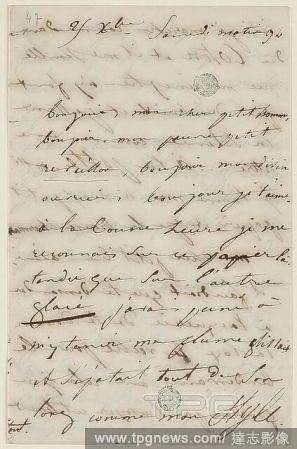 47
25 Xbre Samedi matin 9h
bonjour, mon cher petit homme,
bonjour mon pauvre petit
bonjour mon divin
bonjour je t'aime
à la bonne heure je me
reconnais sur ce papier là
tandis que sur l'autre
glacé j'avais peine à
m'y tenir ma plume glissait
et s'épatait tout de son
long comme mon style
tout.
TPG
www.tpgnews.com 達志影像